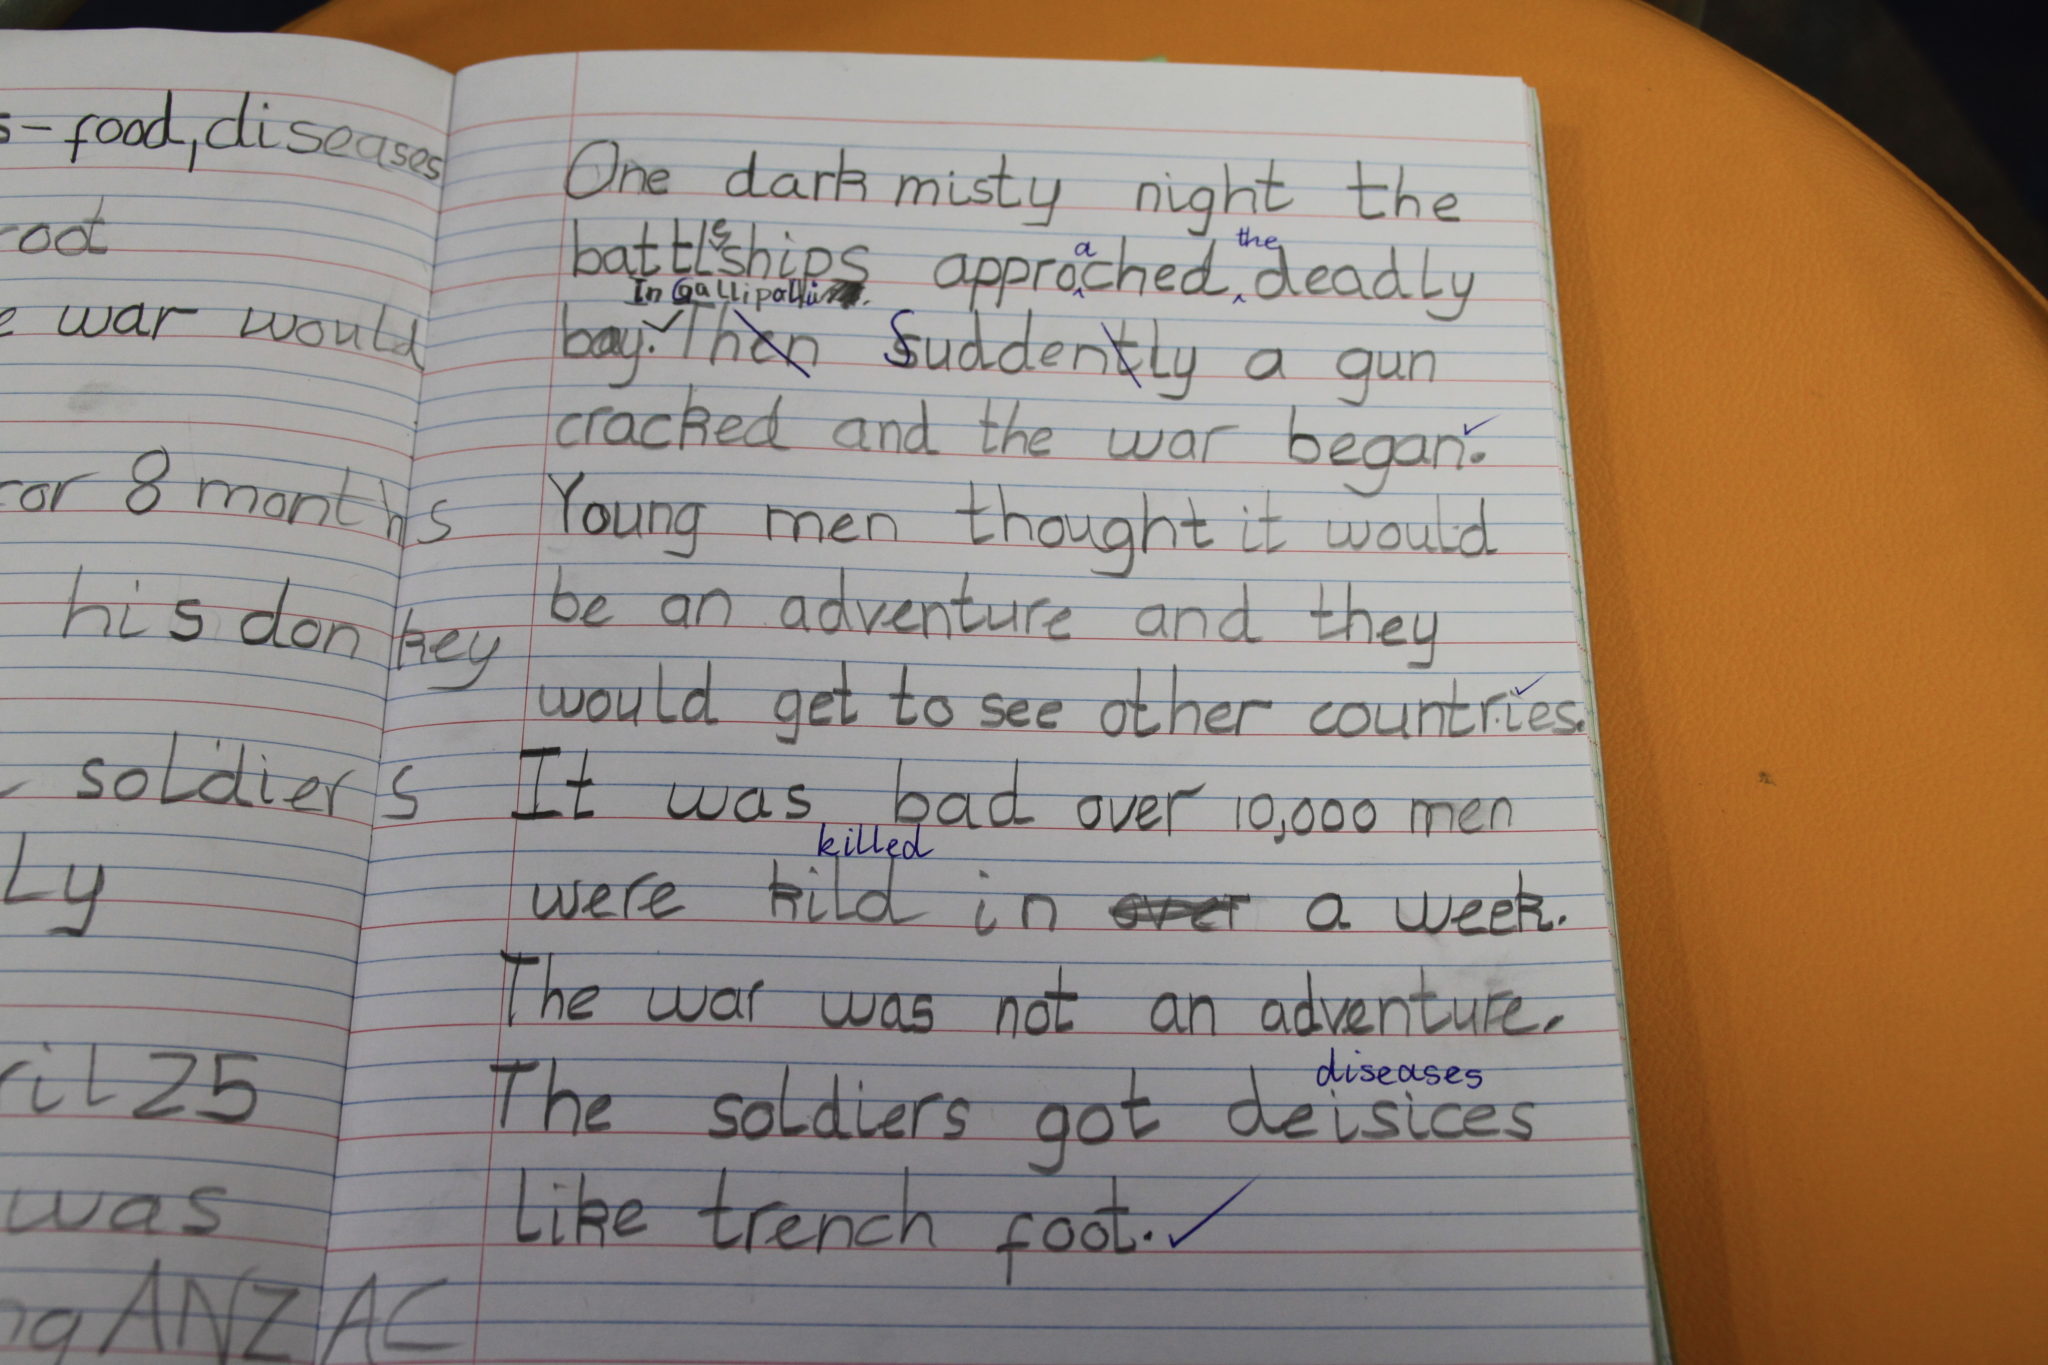 s - food, diseases
oot
e war would
for 8 months
his donkey
soldiers
Ly
ril 25
was
ng ANZAC
One dark misty night the
e
battlships approched deadly
a
the
In Gallipolli
bay. Then Suddently a gun
cracked and the war began.
Young men thought it would
be an adventure and they
would get to see other countries.
It was bad over 10,000 men
killed
were kild in over a week.
The war was not an adventure.
diseases
The soldiers got deisices
like trench foot.